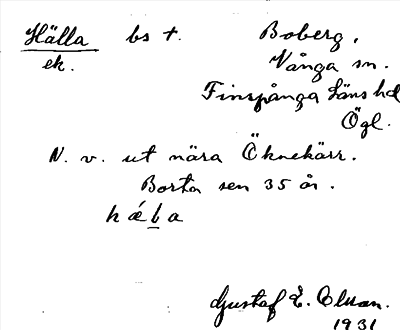 Hälla bs t. Boberg,
ek. Vånga sn.
Finspånga Läns hd
Ögl.
N. v. ut nära Öknekärr.
Borta sen 35 år.
h ǽ l a
Gustaf E. Olsson.
1931